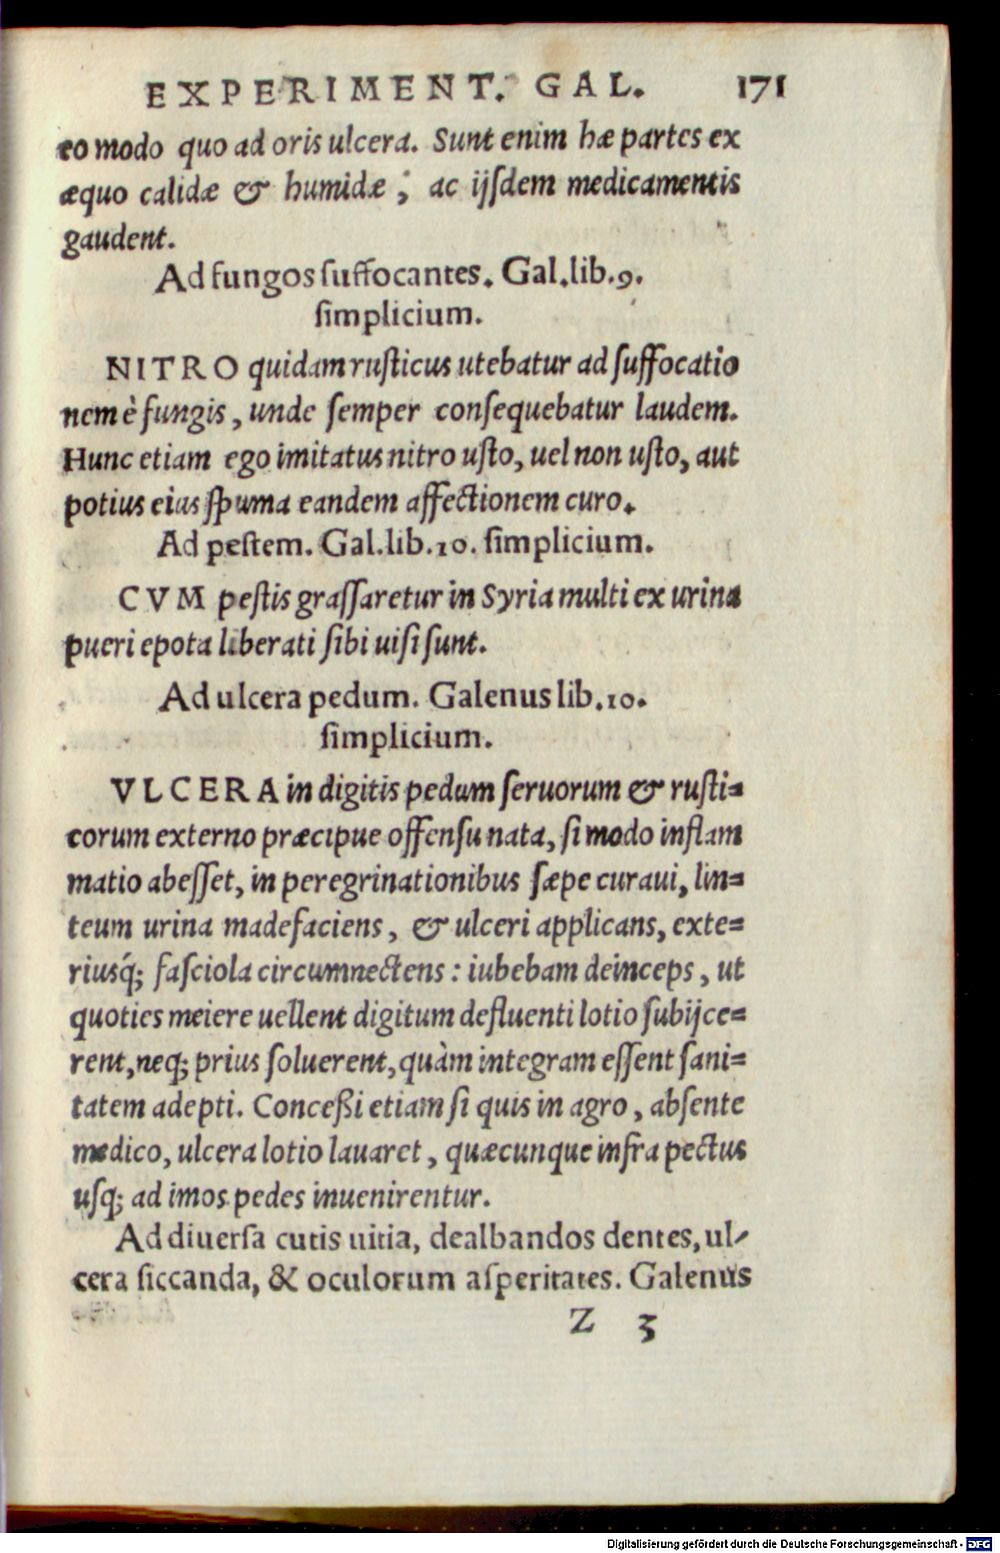 EXPERIMENT. GAL. 171
eo modo quo ad oris ulcera. Sunt enim hæ partes ex
æquo calidæ & humidæ; ac ijſdem medicamentis
gaudent.
Ad fungos ſuffocantes. Gal.lib.9.
ſimplicium.
NITRO quidam ruſticus utebatur ad ſuffocatio
nem è fungis, unde ſemper conſequebatur laudem.
Hunc etiam ego imitatus nitro uſto, uel non uſto, aut
potius eius ſpuma eandem affectionem curo.
Ad peſtem. Gal.lib.10. ſimplicium.
CVM peſtis graſſaretur in Syria multi ex urina
pueri epota liberati ſibi uiſi ſunt.
Ad ulcera pedum. Galenus lib.10.
ſimplicium.
VLCERA in digitis pedum ſeruorum & ruſti=
corum externo præcipue offenſu nata, ſi modo inflam
matio abeſſet, in peregrinationibus ſæpe curaui, lin=
teum urina madefaciens, & ulceri applicans, exte=
riusq́; faſciola circumnectens: iubebam deinceps, ut
quoties meiere uellent digitum defluenti lotio ſubijce=
rent, neq; prius ſoluerent, quàm integram eſſent ſani=
tatem adepti. Conceßi etiam ſi quis in agro, abſente
medico, ulcera lotio lauaret, quæcunque infra pectus
uſq; ad imos pedes inuenirentur.
Ad diuerſa cutis uitia, dealbandos dentes, ul-
cera ſiccanda, & oculorum aſperitates. Galenus
Z 3
Digitalisierung gefördert durch die Deutsche Forschungsgemeinschaft - DFG